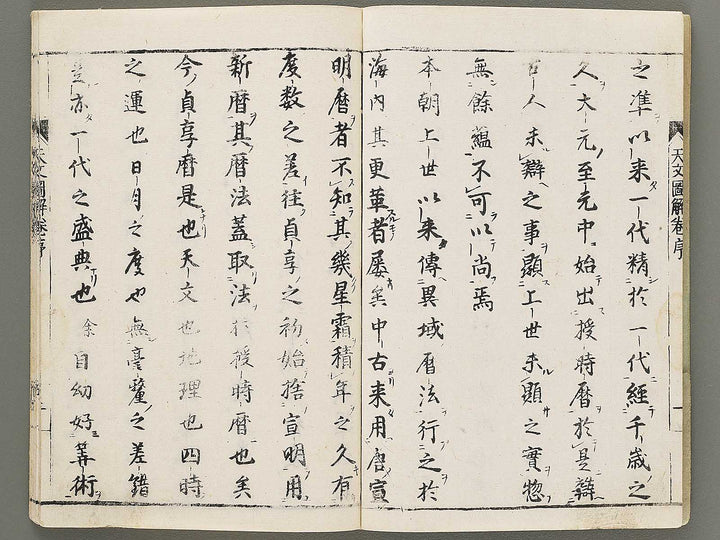 之準以来一代精於一代経千歳之
久大元至元中始出授時暦於是辯
古人未辯之事顕上世未顕之實惣
無餘蘊不可以尚焉
本朝上世以来傳異域暦法行之於
海内其更革者屡矣中古来用唐宣
明暦者不知其幾星霜積年之久有
度数之差往貞享之初始捨宣明用
新暦其暦法蓋取法於授時暦也矣
今貞享暦是也天文也地理也四時
之運也日月之度也無毫釐之差錯
豈亦一代之盛典也余自幼好筭術
天文圖解巻序
天文圖解巻序